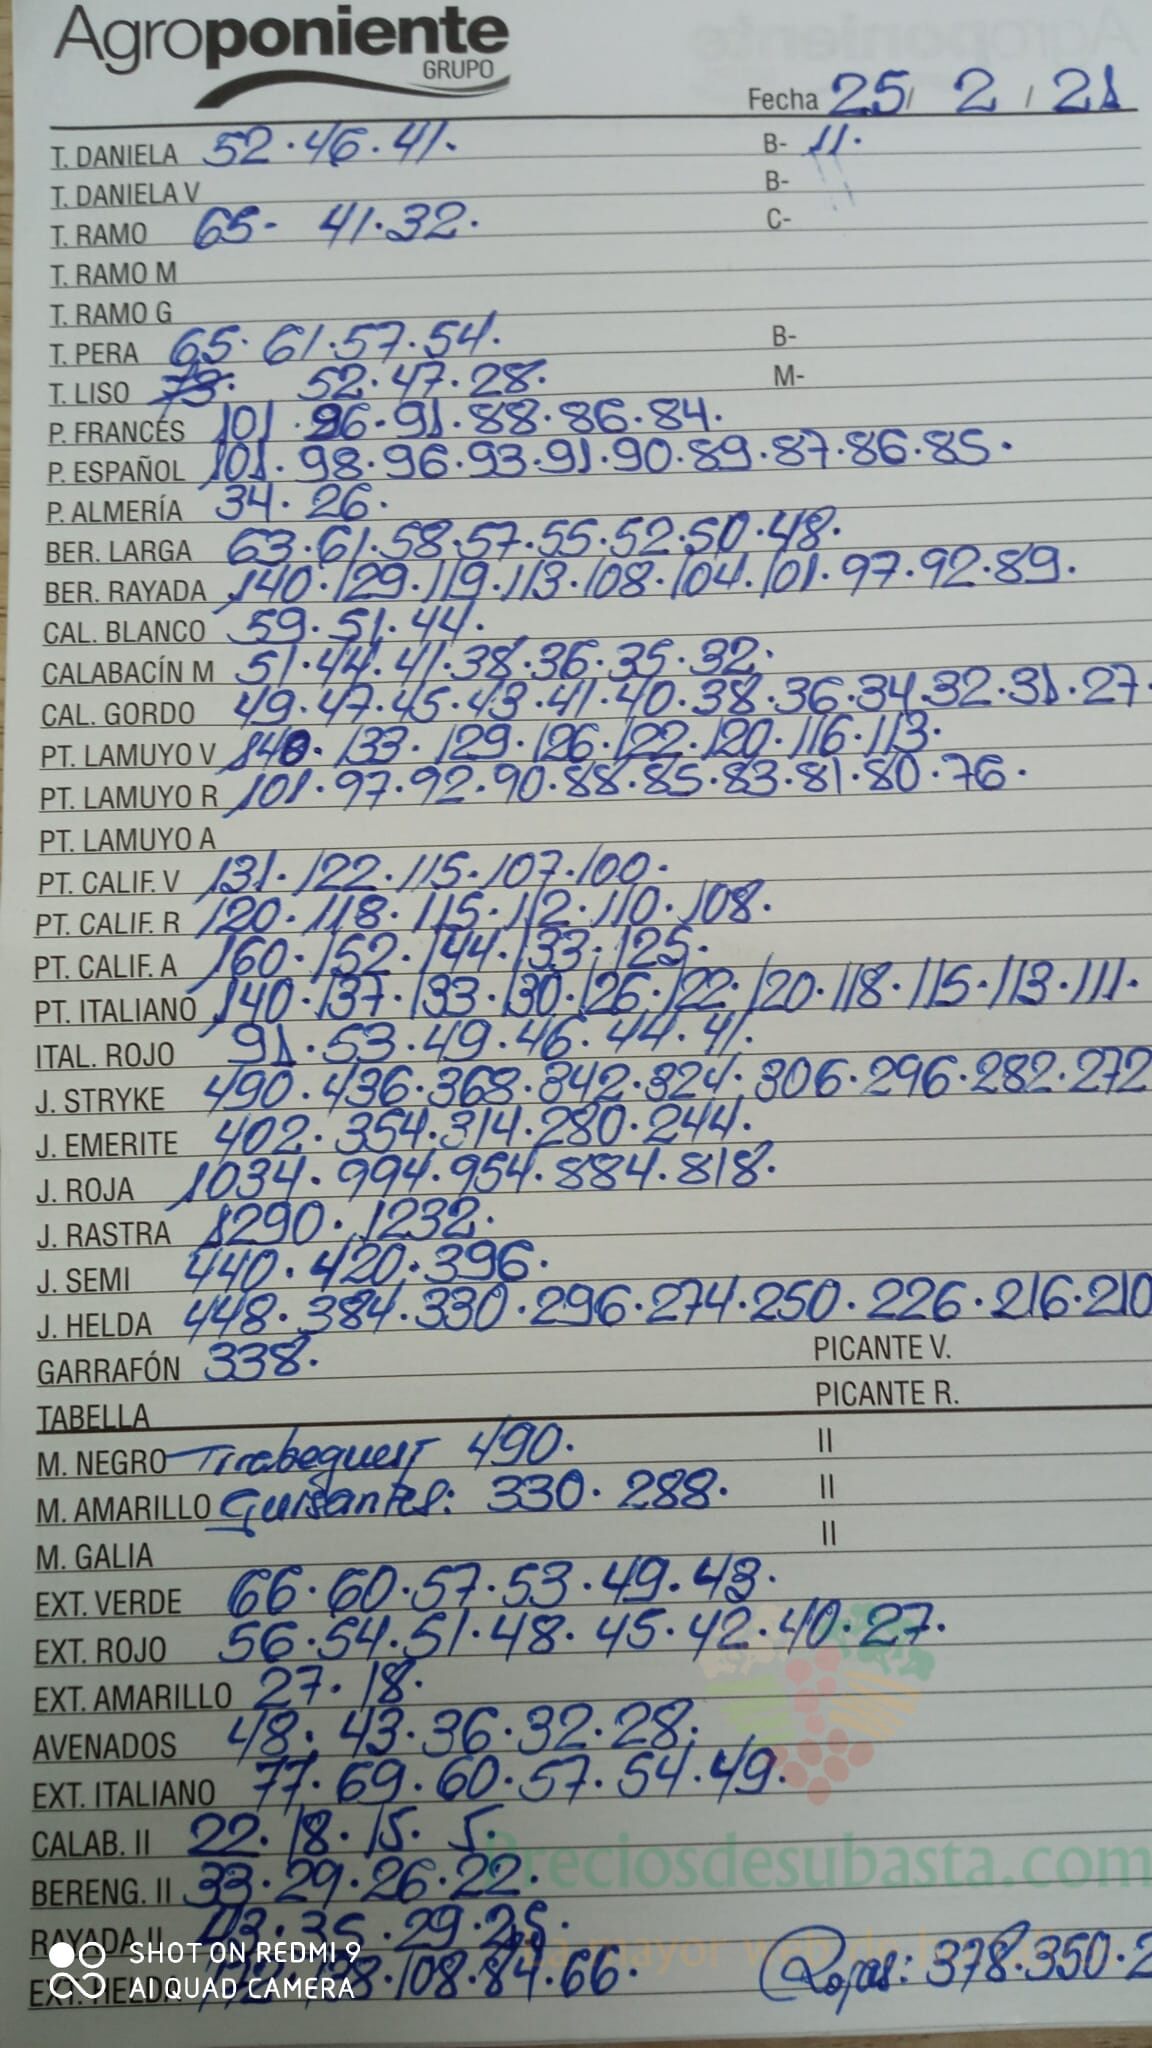 Agroponiente
GRUPO
Fecha 25/ 2 / 21
T. DANIELA 52.46.41. B- 11.
T. DANIELA V B-
T. RAMO 65- 41.32. C-
T. RAMO M
T. RAMO G
T. PERA 65. 61.57.54. B-
T. LISO 73. 52.47.28. M-
P. FRANCÉS 101.96.91.88.86.84.
P. ESPAÑOL 101.98.96.93.91.90.89.87.86.85.
P. ALMERÍA 34.26.
BER. LARGA 63.61.58.57.55.52.50.48.
BER. RAYADA 140.129.119.113.108.104.101.97.92.89.
CAL. BLANCO 59.51.44.
CALABACÍN M 51.44.41.38.36.35.32.
CAL. GORDO 49.47.45.43.41.40.38.36.34.32.31.27.
PT. LAMUYO V 140.133.129.126.122.120.116.113.
PT. LAMUYO R 101.97.92.90.88.85.83.81.80.76.
PT. LAMUYO A
PT. CALIF. V 131.122.115.107.100.
PT. CALIF. R 120.118.115.112.110.108.
PT. CALIF. A 160.152.144.133.125.
PT. ITALIANO 140.137.133.130.126.122.120.118.115.113.111.
ITAL. ROJO 91.53.49.46.44.41.
J. STRYKE 490.436.368.342.324.306.296.282.272
J. EMERITE 402.354.314.280.244.
J. ROJA 1034.994.954.884.818.
J. RASTRA 1290.1232.
J. SEMI 440.420.396.
J. HELDA 448.384.330.296.274.250.226.216.210
GARRAFÓN 338. PICANTE V.
TABELLA PICANTE R.
M. NEGRO Tirabequest 490. II
M. AMARILLO Guisantes: 330.288. II
M. GALIA II
EXT. VERDE 66.60.57.53.49.43.
EXT. ROJO 56.54.51.48.45.42.40.27.
EXT. AMARILLO 27.18.
AVENADOS 48.43.36.32.28.
EXT. ITALIANO 77.69.60.57.54.49.
CALAB. II 22.18.15.5.
Preciosdesubasta.com
BERENG. II 33.29.26.22.
RAYADA II 43.35.29.25.
La mayor web de
SHOT ON REDMI 9
AI QUAD CAMERA
EXT. HELDA 108.84.66. Rojas: 378.350.2